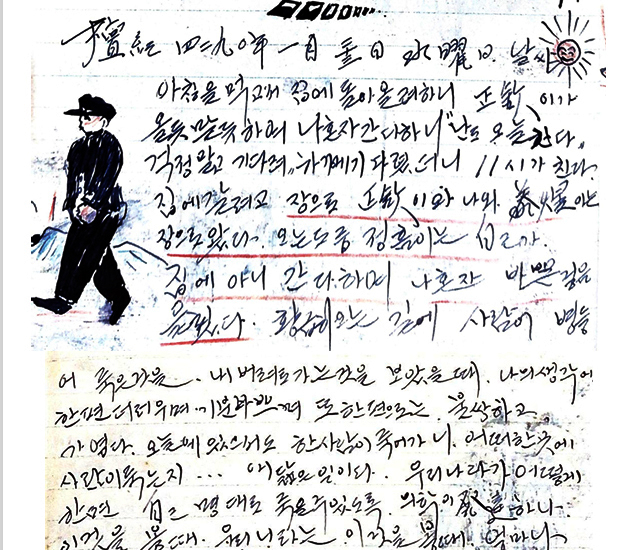 檀紀 四二九〇年 一月 日 水曜日. 날씨
아침을 먹고 집에 돌아올려하니 正 이가
올듯말듯하며 나혼자간다하니 "난도 오늘간다.
걱정말고 기다려." 하기에 기다렸더니 11시가 친다.
집에갈려고 장으로 正 이와 나와 이는
장으로 왔다. 오는도중 정흠이는 自己가
집에 아니 간다하며 나혼자 바쁜걸음
왔다. 오는 길에 사람이 병들
어 죽은것을. 내버려로가는것을 보았을때. 나의생각에
한편 더러우며. 기분나쁘며 또한편으로는. 불쌍하고.
가엽다. 오늘에 있어서도 한사람이 죽어가니. 어떠한곳에
사람이죽는지... 애닲은일이다. 우리나라가 어떻게
하면 自己 명대로 죽을수있도록. 의학이 發達하나.
이것을 볼때. 우리나라는 이것을 볼때. 얼마나